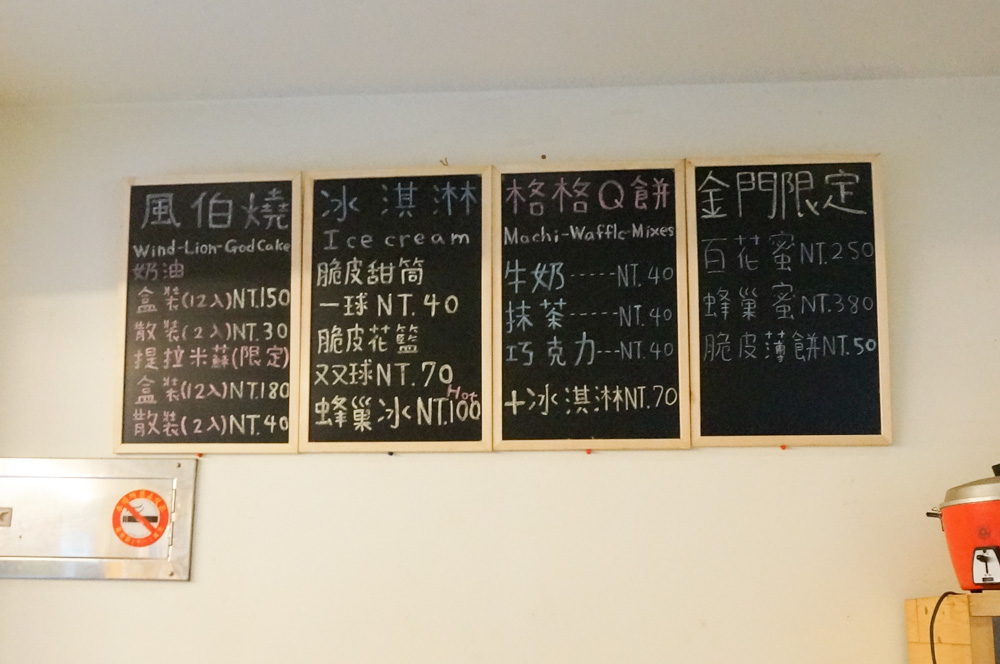 風伯燒
Wind-Lion-GodCake
奶油
盒裝(12入)NT.150
散裝(2入)NT.30
提拉米蘇(限定)
盒裝(12入)NT.180
散裝(2入)NT.40
冰淇淋
Ice cream
脆皮甜筒
一球NT.40
脆皮花籃
双球NT.70
Hot
蜂巢冰NT.100
格格Q餅
Mochi-Waffle-Mixes
牛奶------NT.40
抹茶------NT.40
巧克力---NT.40
+冰淇淋NT.70
金門限定
百花蜜NT.250
蜂巢蜜NT.380
脆皮薄餅NT.50